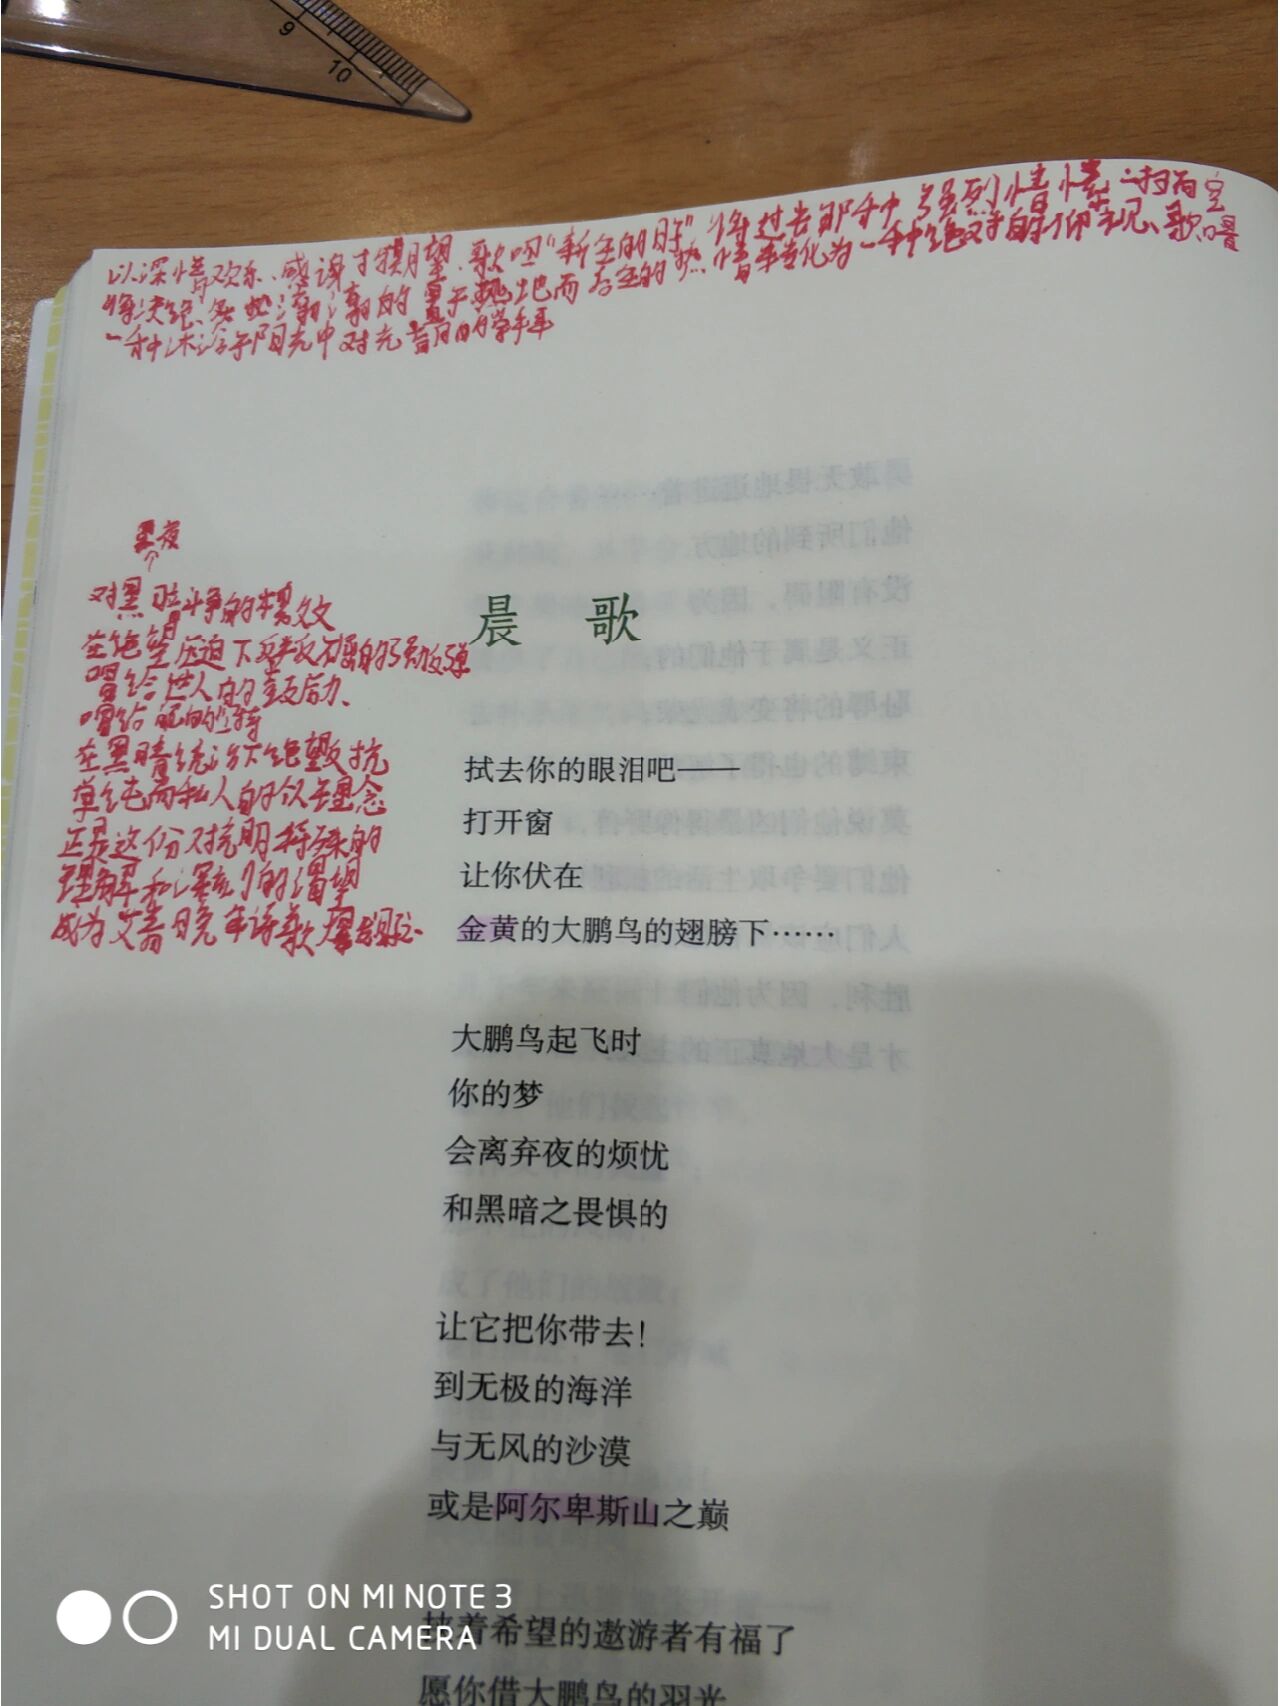 9
10
以深情欢乐、感谢
期望、歌咀“新生的
将过去那种强烈情愫一扫而空
将决绝
的置于热土地而存在的热情转化为一种绝对的仰视、歌唱
一种沐浴于阳光中对光
黑夜
对黑暗斗争的
在绝望压迫下
唱给世人的鼓
在黑暗统治下绝望反抗
单纯而私人的
理念
正是这份对光明特殊的
理解和深刻的渴望
成为艾青晚年诗歌
晨 歌
拭去你的眼泪吧——
打开窗
让你伏在
金黄的大鹏鸟的翅膀下……
大鹏鸟起飞时
你的梦
会离弃夜的烦忧
和黑暗之畏惧的
让它把你带去！
到无极的海洋
与无风的沙漠
或是阿尔卑斯山之巅
着希望的遨游者有福了
愿你借大鹏鸟的羽光
SHOT ON MI NOTE 3
MI DUAL CAMERA